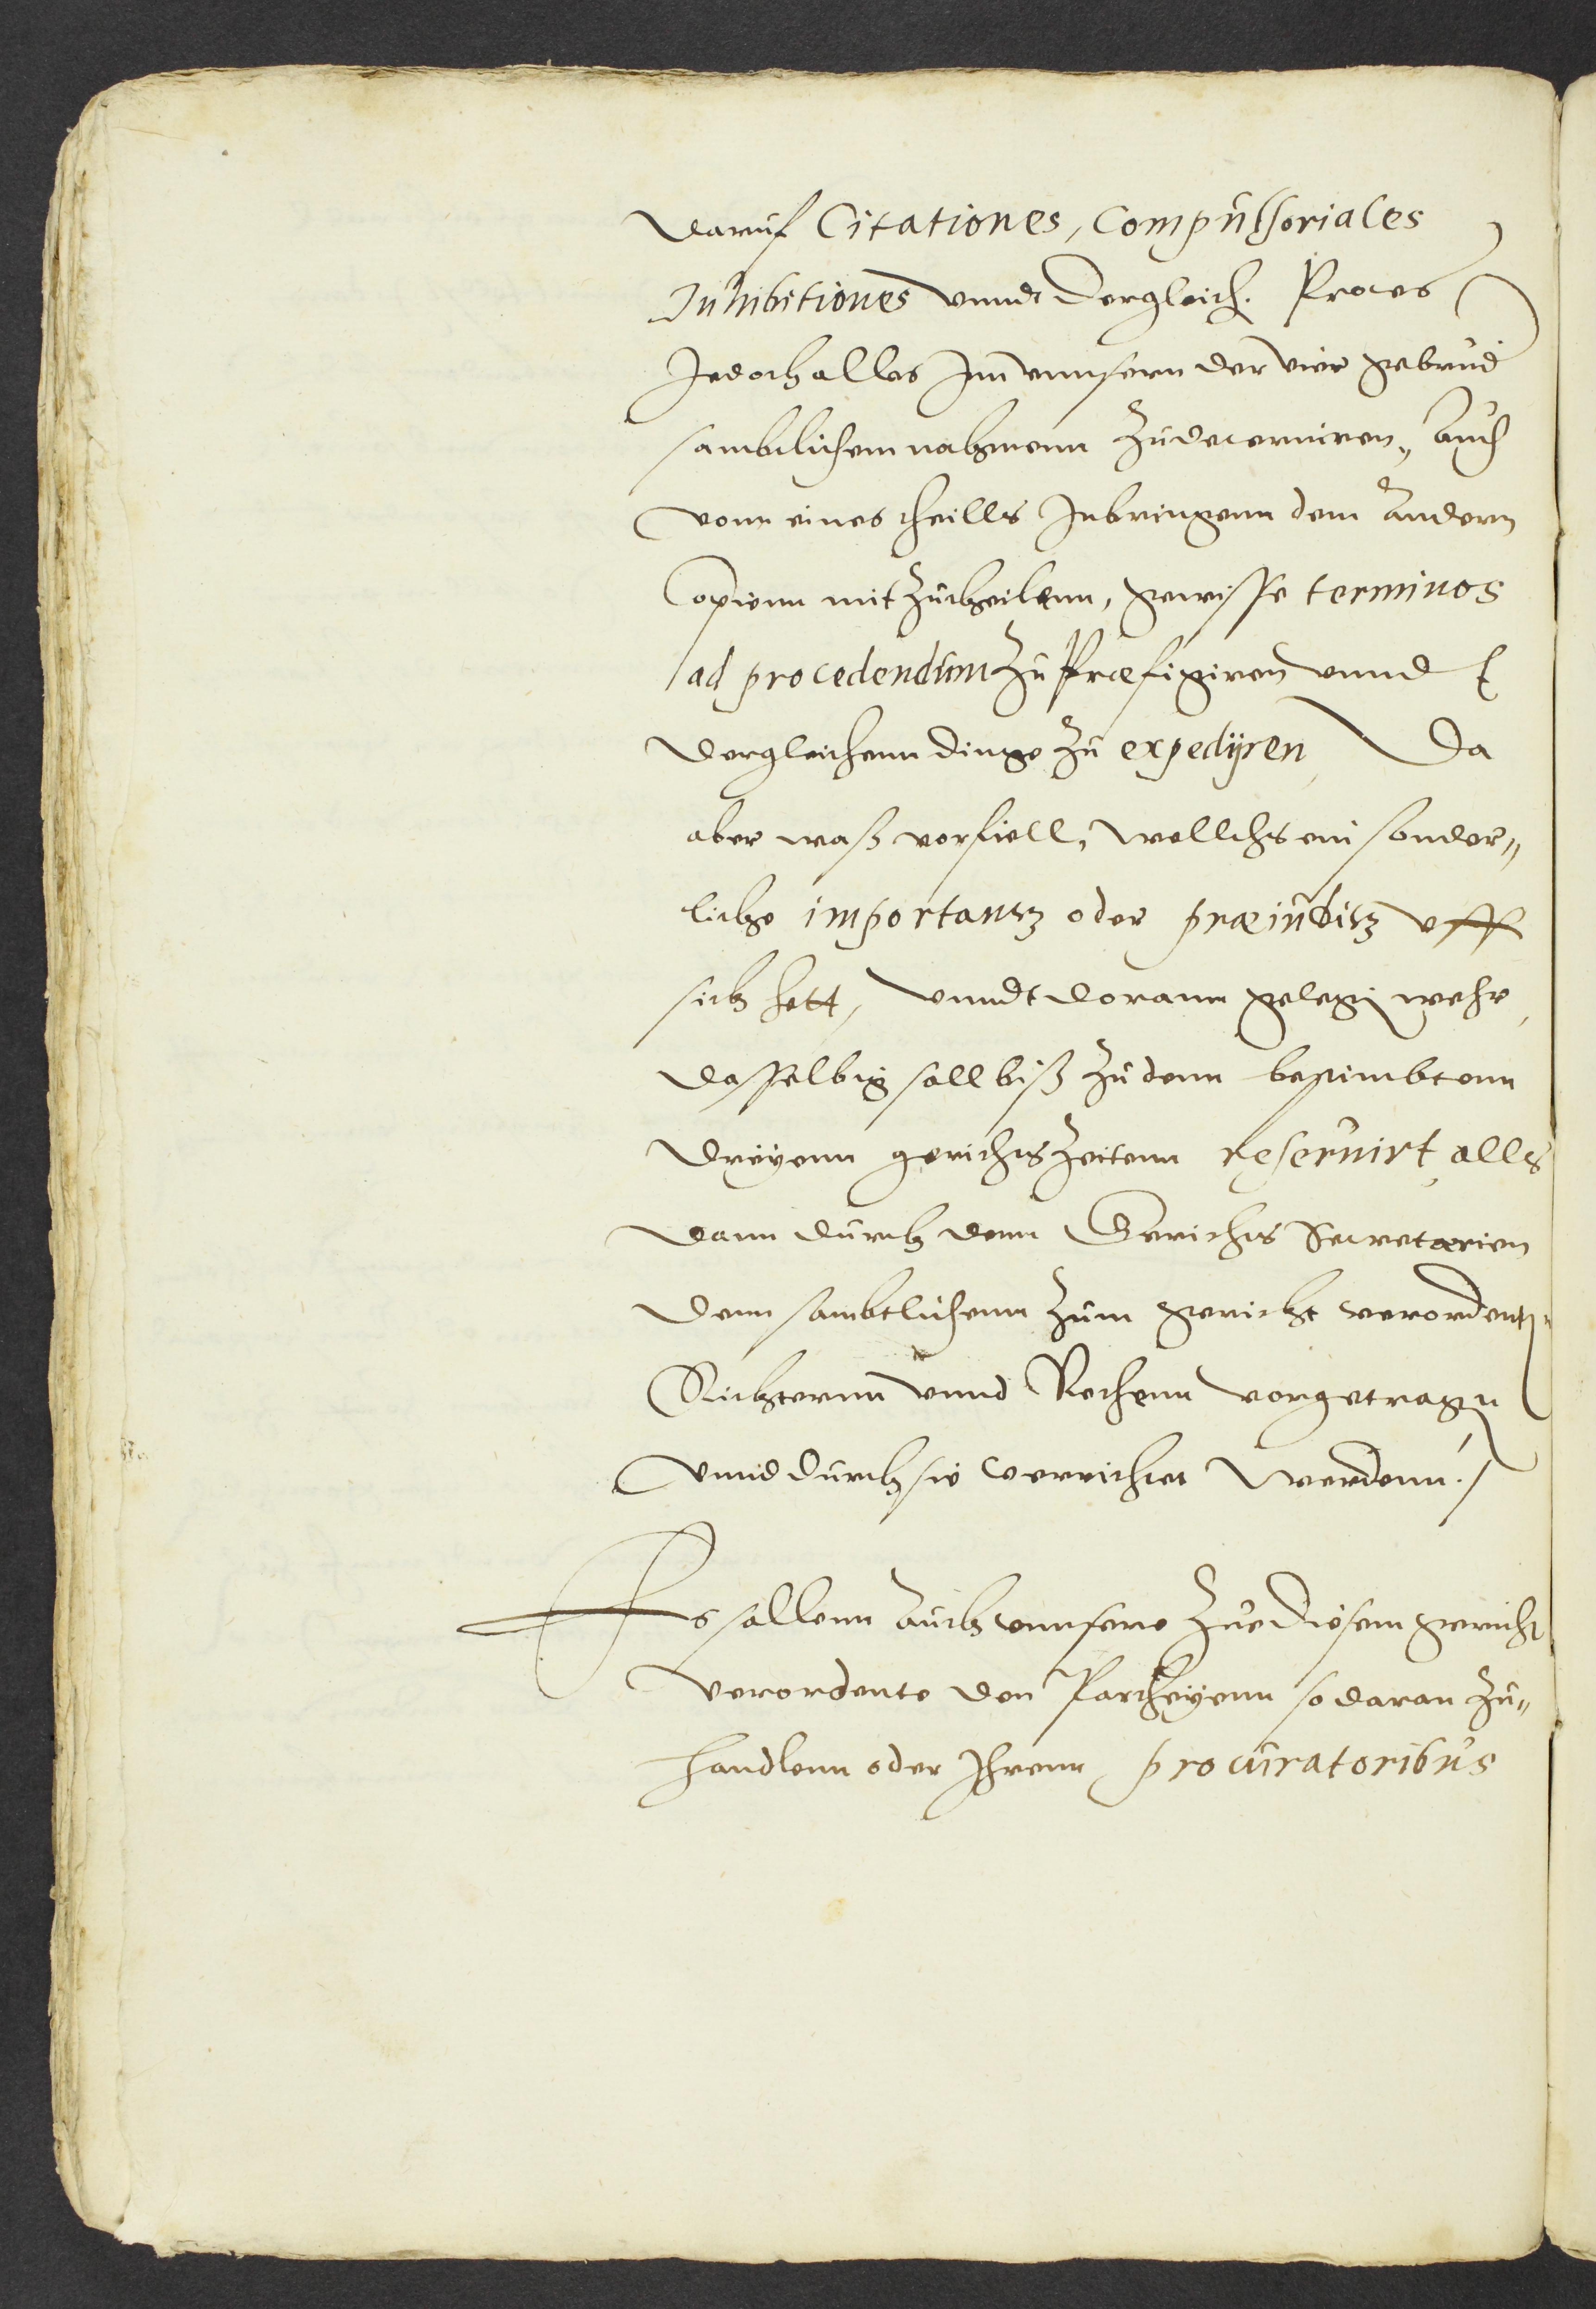 daruf Citationes, Compulsoriales
Inhibitiones vnndt dergleich. Proces
Jedoch alles Inn vnnsern der vier gebrüd
sambtlichem nahmenn Zudecerniren, Auch
vonn eines theills Inbringenn dem Andern
Copienn mit Zutheilenn, gewisse terminos
ad procedendum Zu Præfigiren vnnd
dergleichenn dinge Zu expedijren Da
aber waß vorfiell, wellchs ein sonder„
liche importantz oder præiuditz vff
sich hett, vnndt darann gelegen wehr,
dasselbig soll biß Zu denn bestimbtenn
dreyenn gerichts Zeitenn reseruirt, alles
dann durch denn Gerichts Secretarien
denn sambtlichenn Zum gericht verordenten
Richternn vnnd Rethenn vorgetragen
vnnd durch sie verrichtet werdenn ./
Es sollenn Auch vnnsere Zue diesem gericht
verordente den Partheyenn so daran Zu„
handlenn oder Ihrenn procuratoribus